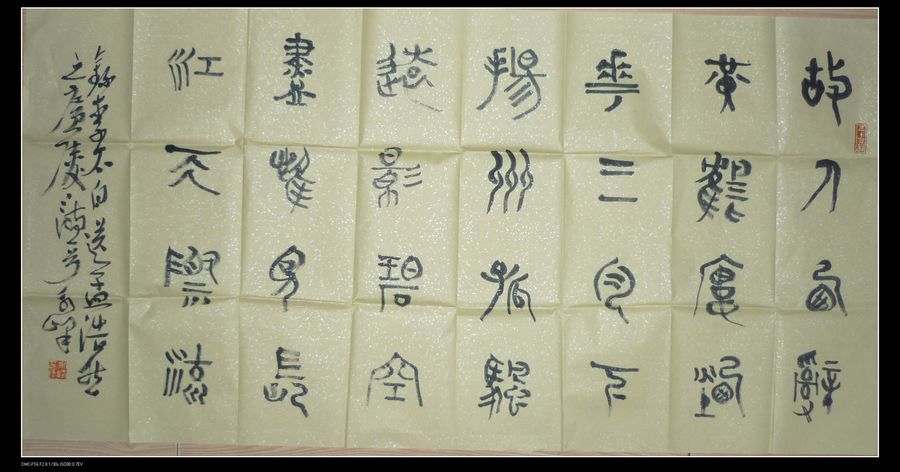 故人西辭
黃鶴樓煙
華三月下
揚州孤颿
遠影碧空
盡唯見長
江天際流
錄李太白送孟浩然
之廣陵